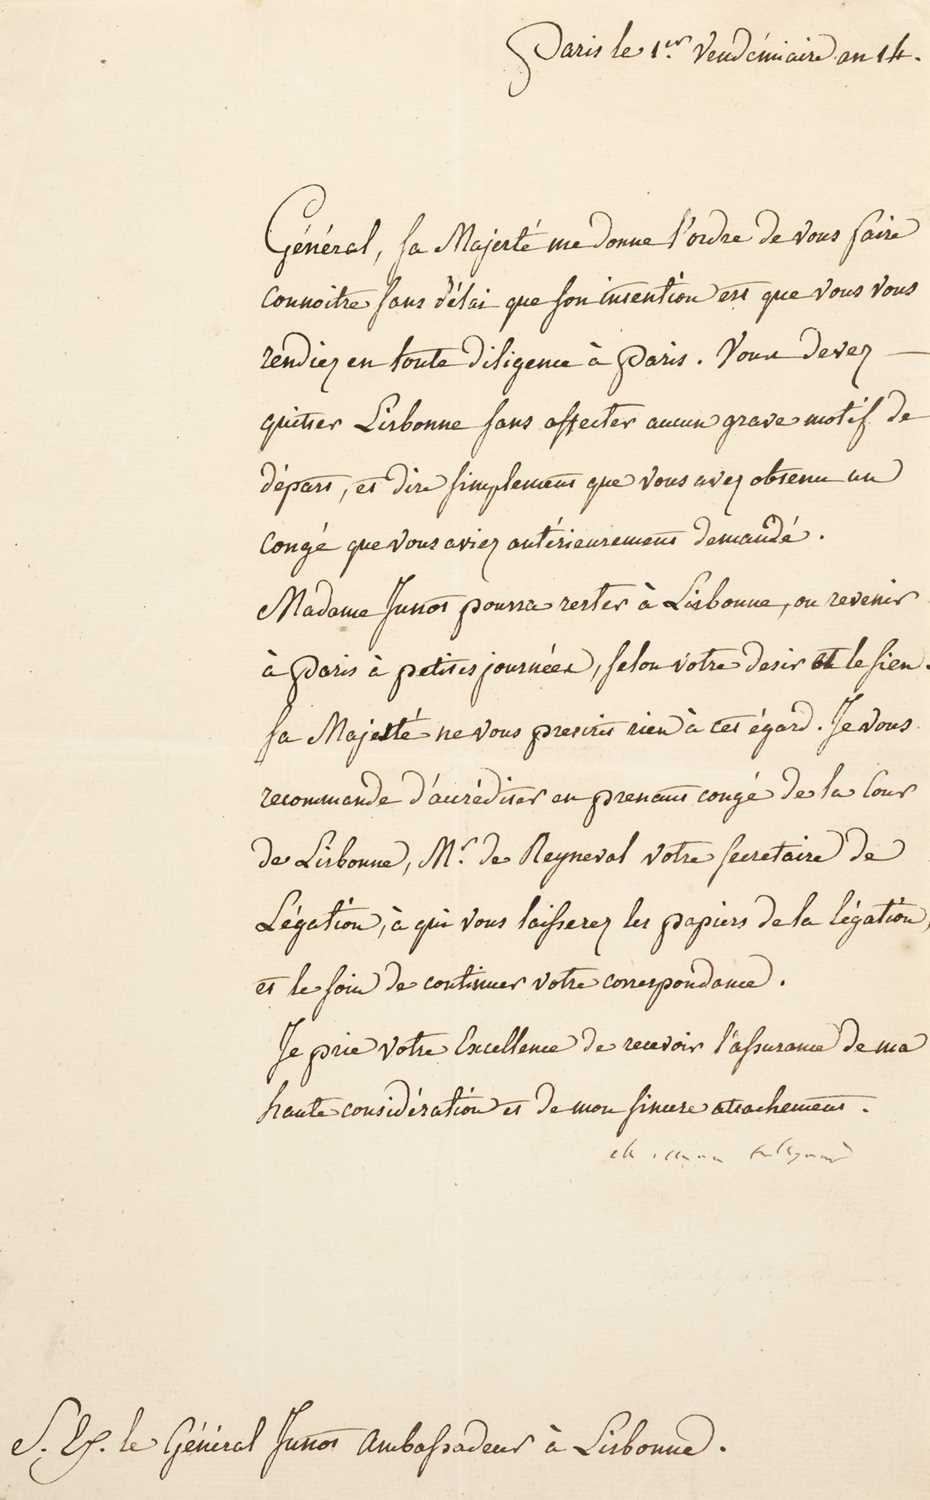 Paris le 1.er Vendémiaire an 14.
Général, Sa Majesté me donne l'ordre de vous faire
connoitre sans délai que son intention est que vous vous
rendiez en toute diligence à Paris. Vous devez
quitter Lisbonne sans affecter aucun grave motif de
départ, et dire simplement que vous avez obtenu un
congé que vous aviez antérieurement demandé.
Madame Junot pourra rester à Lisbonne, ou revenir
à Paris à petites journées, selon votre desir et le sien.
Sa Majesté ne vous prescrit rien à cet égard. Je vous
recommande d'accréditer en prenant congé de la Cour
de Lisbonne, M.r de Reyneval votre secretaire de
Légation, à qui vous laisserez les papiers de la légation,
et le soin de continuer votre correspondance.
Je prie votre Excellence de recevoir l'assurance de ma
haute considération et de mon sincere attachement.
S. Ex. le Général Junot Ambassadeur à Lisbonne.